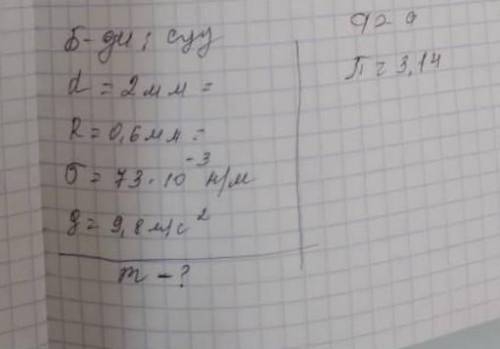 Б-ди; суу
d = 2мм =
R = 0,6мм =
σ = 73·10⁻³ н/м
g = 9,8м/с²
m - ?
π = 3,14